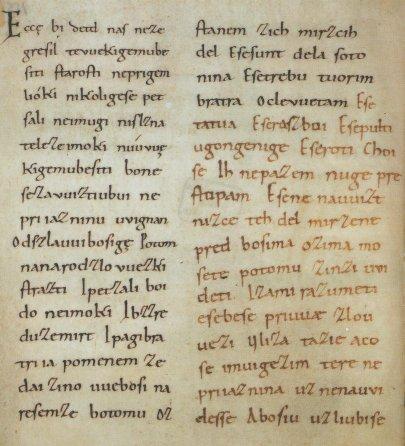 Eccę bi detd naſ neze
greſil tevuekigemube
ſiti ſtaroſti neprigem
lióki nikoligeſe pet
ſali neimugi niſlzna
telezeimoki núúvúę
kigemubeſiti bone
ſezavuiztiubui ne
priiazninu uvignan
Odszlauuibosigę Potom
nanarodzlovuezki
ſtrazti Ipetzali boi
do neimoki Ibzzre
duzemirt Ipagibra
triia pomenem ze
dai zino uuebosi na
resemze botomu oz
ſtanem zich mirzcih
del Eſeſunt dela ſoto
nina Eſetrebu tuorim
bratra Oclevuetam Eſe
tatua Eſeraszboi Eſepulti
ugongenige Eſeroti Choi
ſe Ih nepazem nuge pre
ſtopam Eſene nauuizt
nazce teh del mirzene
pred bosima ozima mo
sete potomu zinzi uvi
deti Izami razumeti
eſebeſe priuuæ zlou
uezi Uliza tazie aco
se imuigezim tere ne
priiaznina uznenauvi
desse Abosiu uzliubise